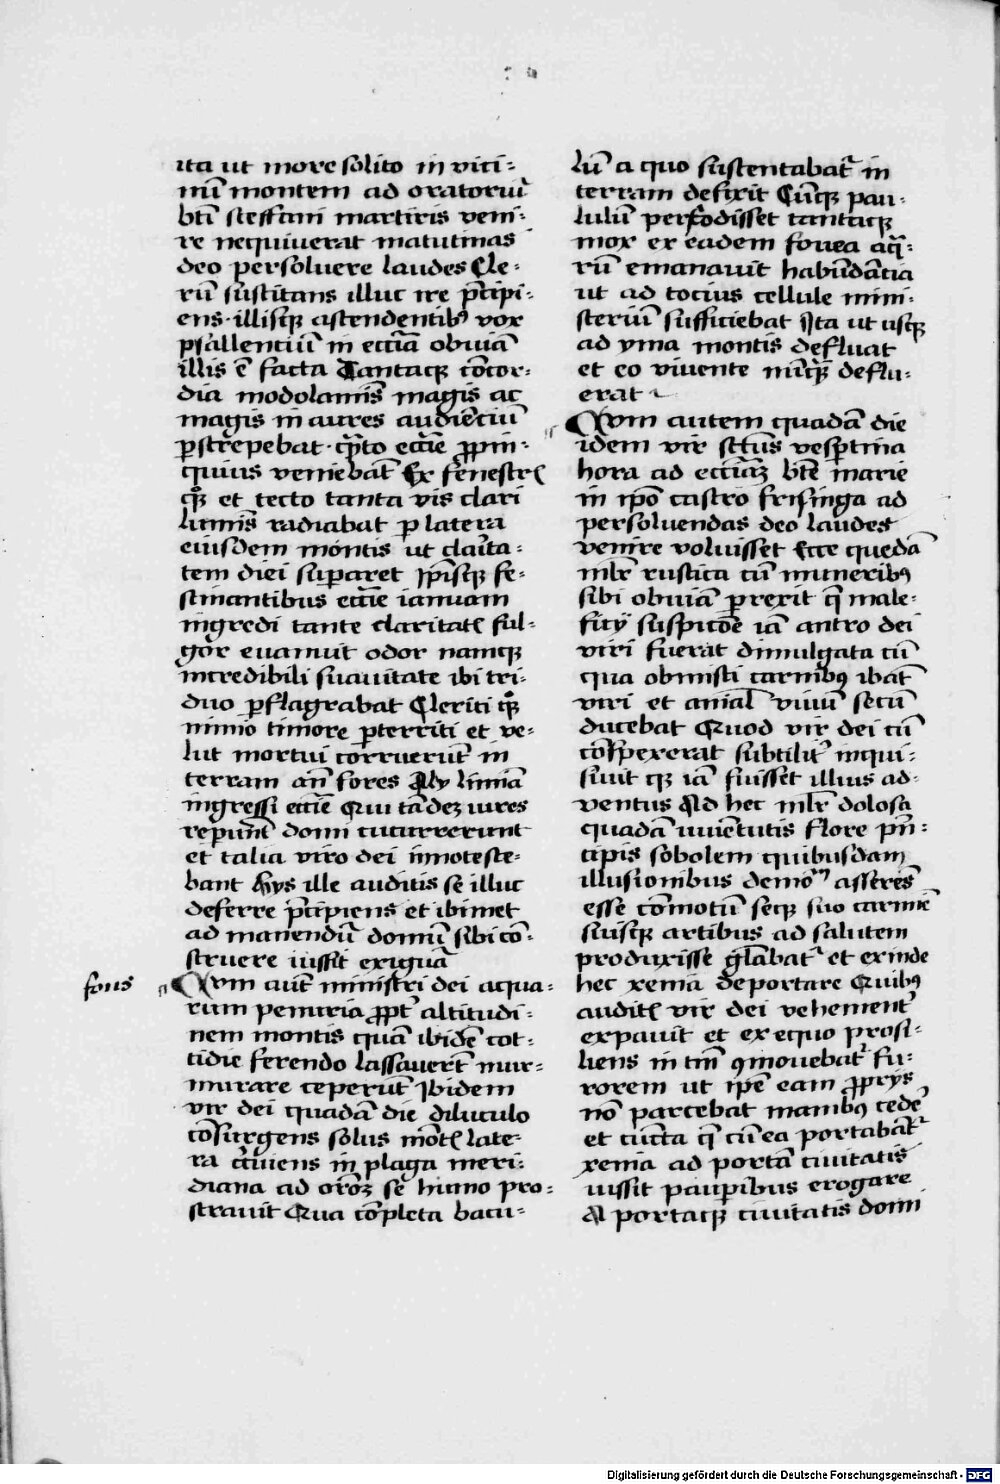 ita ut more solito in vici-
nũ montem ad oratoriũ
bt̃i steffani martiris veni-
re nequiuerat matutinas
deo persoluere laudes Cle-
rũ suscitans illuc ire p̃cipi-
ens illisq̃ ascendentib9 vox
psallenciũ in ecc̃iã obuiã
illis ẽ facta Tantaq̃ cõcor-
dia modolamĩs magis ac
magis in aures audiẽciũ
ꝑstrepebat q̃to ecc̃ie ꝓpin-
quius veniebãt Ex fenestr̃
q̃ et tecto tanta vis clari
lumĩs radiabat ꝑ latera
eiusdem montis ut clarita-
tem diei suꝑaret Ip̃isq̃ fe-
stinantibus ecc̃ie ianuam
ingredi tante claritatꝭ ful-
gor euanuit odor namq̃
incredibili suauitate ibi tri-
duo ꝑflagrabat Clerici q̃
nimio timore ꝑterriti et ve-
lut mortui corruerũt in
terram añ fores Aly limiã
ingressi ecc̃ie Qui tãdez vires
reꝑiunt domi cucurrerunt
et talia viro dei innotesce-
bant Hys ille auditis se illuc
deferre p̃cipiens et ibimet
ad manendũ domũ sibi cõ-
struere iussit exiguã
fons
Cum aut̃ ministri dei acqua-
rum penuria ꝓpt̃ altitudi-
nem montis quã ibidẽ cot-
tidie ferendo lassauerĩt mur-
murare ceperũt Ibidem
vir dei quadã die diluculo
cõsurgens solus mõtꝭ late-
ra circuiens in plaga meri-
diana ad orõz se humo pro-
strauit Qua cõpleta bacu-
lũ a quo sustentabat̃ in
terram defixit Cũq̃ pau-
lulũ perfodisset tantaq̃
mox ex eadem fouea aq̃-
rũ emanauit habũdãcia
ut ad tocius cellule mini-
steriũ sufficiebat Ita ut usq̃
ad yma montis defluat
et eo viuente nũq̃ deflu-
erat
Cum autem quadã die
idem vir sctũs vesꝑtina
hora ad ecc̃iãz bt̃e marie
in ip̃o castro frisinga ad
persoluendas deo laudes
venire voluisset Ecce quedã
ml̃r rustica cũ muneribꝯ
sibi obuiã ꝑrexit q̃ male-
ficij suspicõe iã antro dei
viri fuerat diuulgata cũ
qua obmisti carnibꝯ ibãt
viri et anĩal viuũ secũ
ducebat Quod vir dei cũ
cõspexerat subtilit̃ inqui-
siuit q̃ iã fuisset illius ad-
ventus Ad hec ml̃r dolosa
quadã iuuẽtutis flore p̃n-
cipis sobolem quibusdam
illusionibus demõ asserẽs
esse cõmotũ seq̃ suo carmĩe
suisq̃ artibus ad salutem
produxisse gl̃abat̃ et exinde
hec xenia deportare Quibꝯ
auditꝭ vir dei vehement̃
expauit et ex equo prosi-
liens in tm̃ ꝯmouebat̃ fu-
rorem ut ip̃e eam ꝓprijs
nõ parcebat manibꝯ cedẽ
et cũcta q̃ cũ ea portabãt̃
xenia ad portã ciuitatis
iussit pauꝑibus erogare
A portaq̃ ciuitatis domi
Digitalisierung gefördert durch die Deutsche Forschungsgemeinschaft - DFG